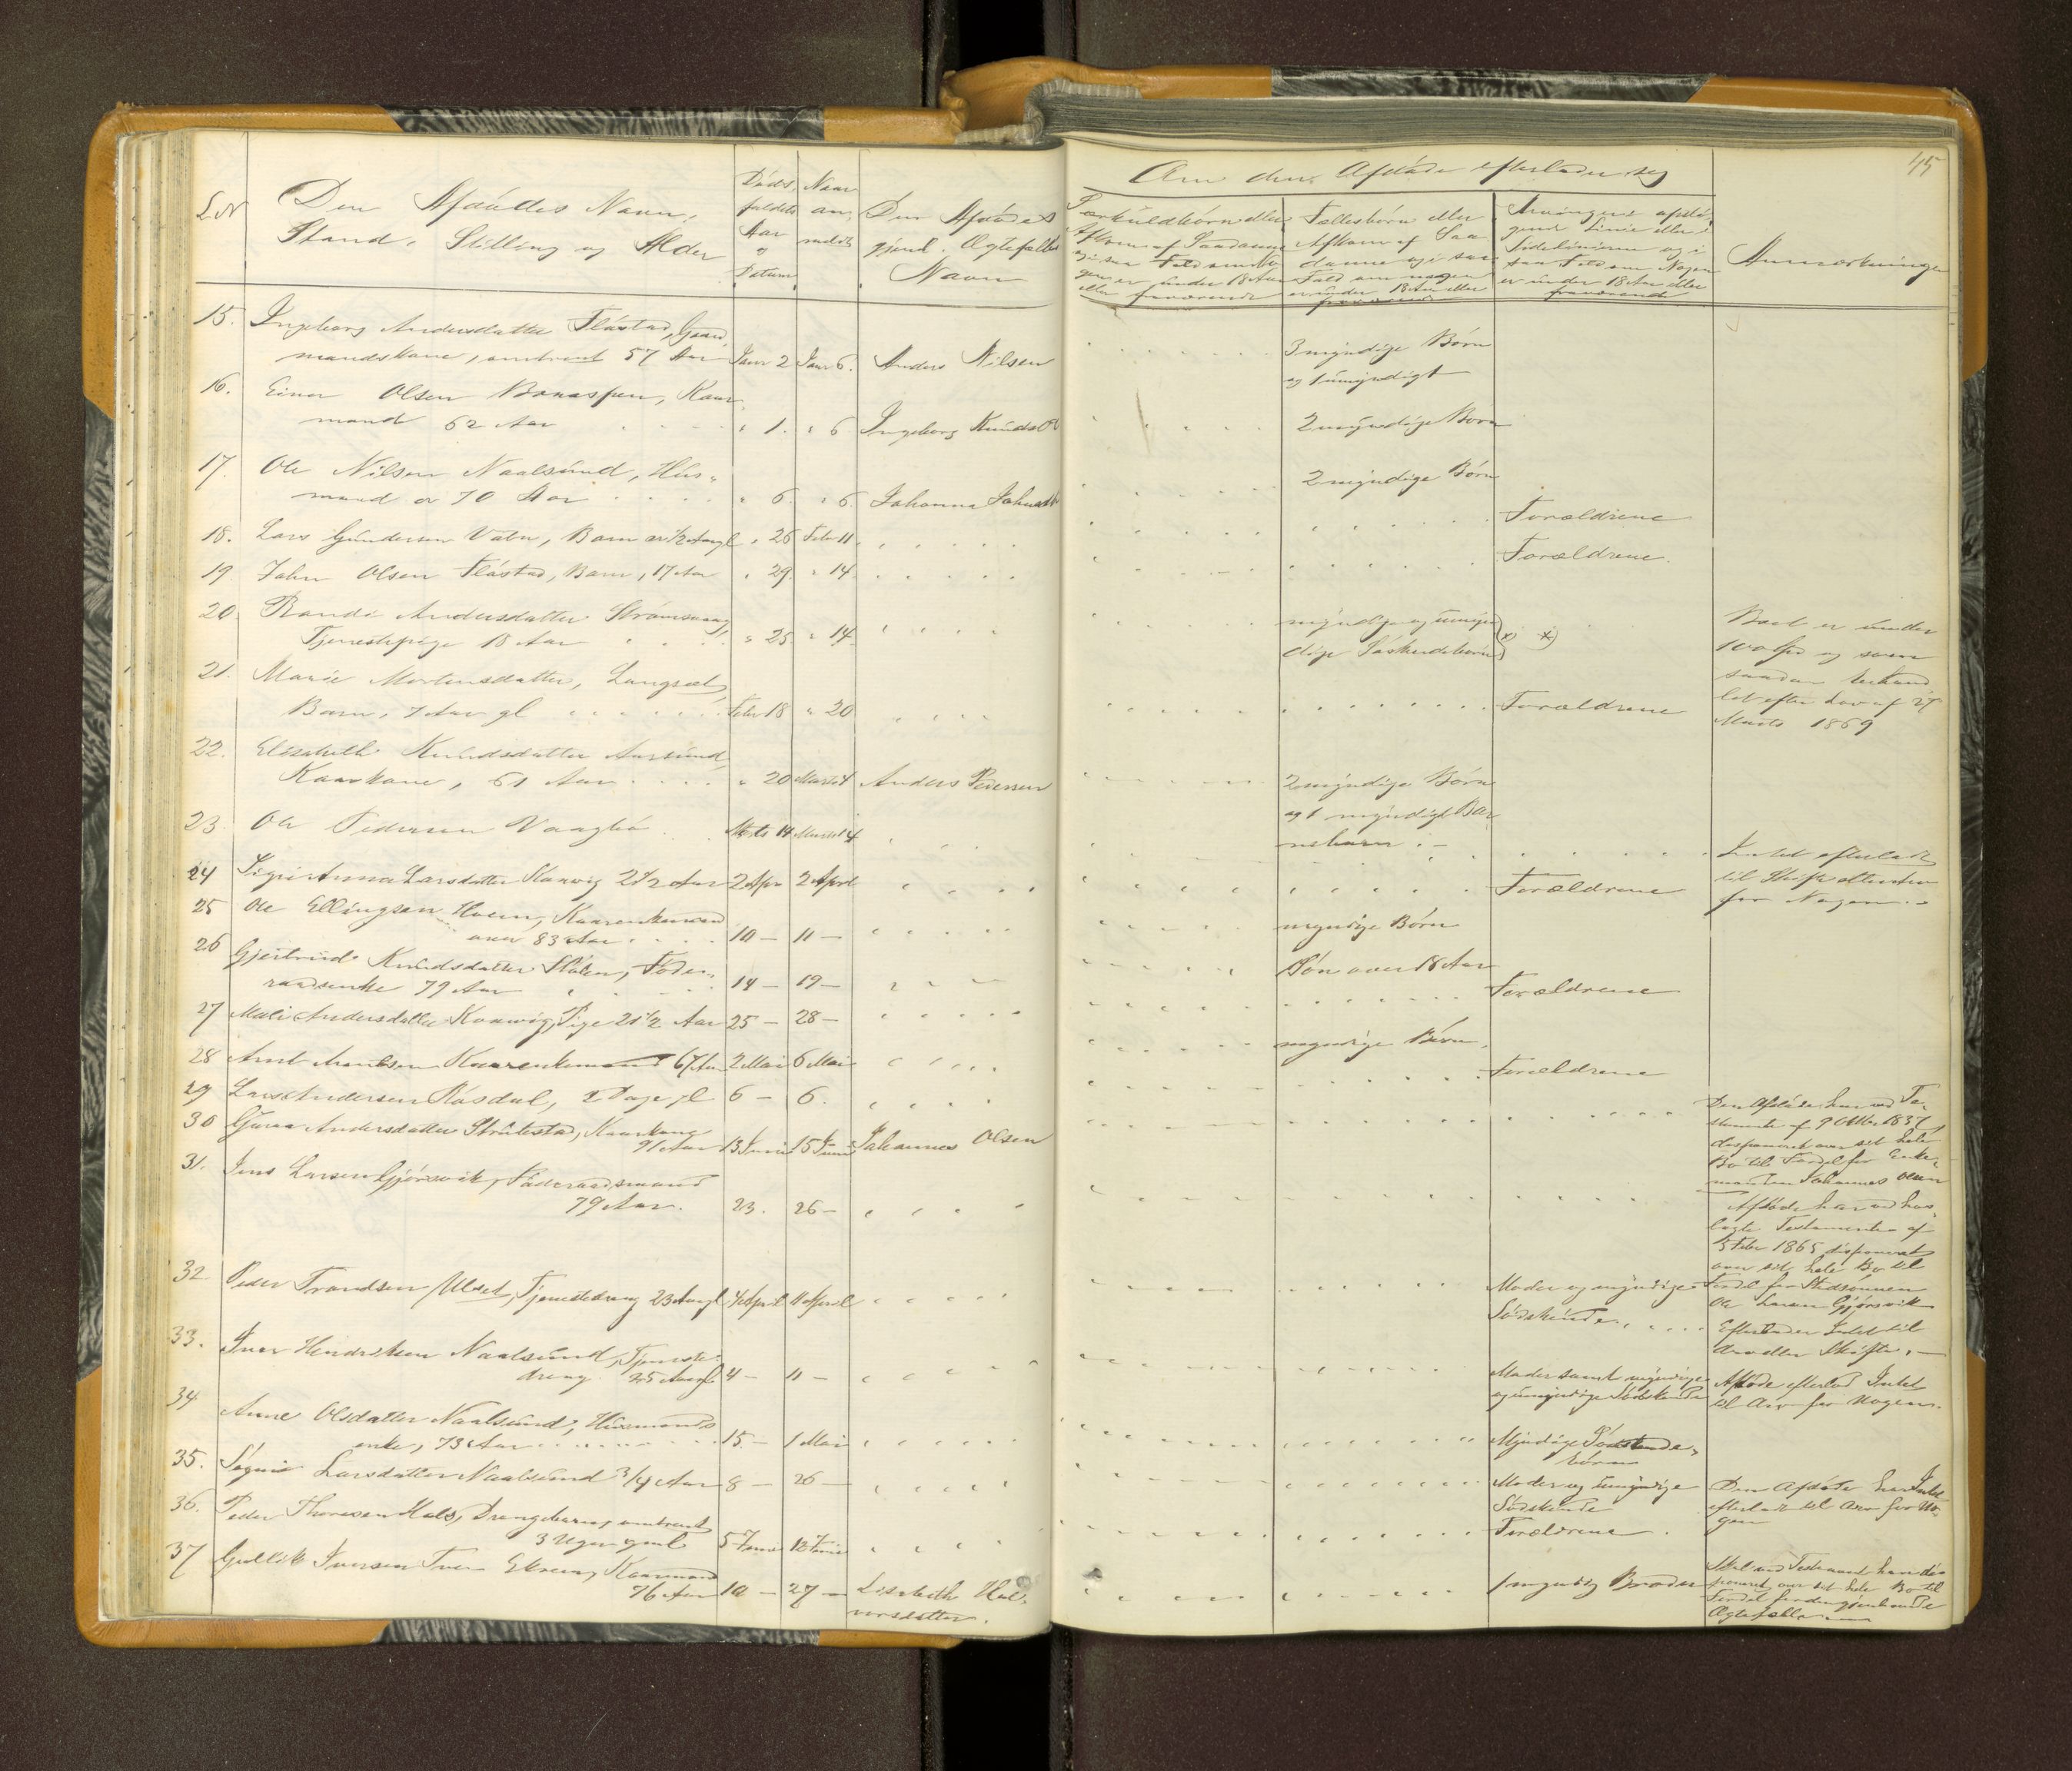 45
L. N
Den Afdödes Navn,
Stand, Stilling og Alder
Döds-
faldets
Aar
og
Datum
Naar
an-
meldt
Den Afdödes
gjenl. Ægtefælles
Navn
Om den Afdöde efterlader sig
Særkuldbörn eller
Afkom af Saadanne
og i saa Fald om No-
gen er under 18 Aar
eller fraværende
Fællesbörn eller
Afkom af Saa-
danne og i saa
Fald om nogen
er under 18 Aar eller
fraværende
Arvinger i opsti-
gende Linie eller i
Sidelinierne og i
saa Fald om Nogen
er under 18 Aar eller
fraværende
Anmærkninger
15. Ingeborg Andersdatter Flöstad, Gaard-
mandskone, omtrent 57 Aar Janr 2 Janr 6. Anders Nilsen 3 myndige Börn
og 1 umyndigt
16. Einer Olsen, Kaar-
mand 62 Aar " 1. " 6 Ingeborg Knudsdtr 2 myndige Börn
17. Ole Nilsen Naalsund, Hus-
mand 70 Aar " 6. " 6. Johanna 2 myndige Börn
18. Lars Gundersen Vatn, Barn 1/2 Aar gl " 26 Febr 11 Forældrene
19. John Olsen Flöstad, Barn, 17 Aar " 29. " 14 Forældrene.
20. Randi Andersdatter
Tjenestepige 18 Aar " 25 " 14 myndige og umyn-
dige Söskendebörn x) x) Boet er under
100 Spd og som
saadan behand-
let efter Lov af 27
Marts 1869
21. Marie Mortensdatter, Langset,
Barn, 7 Aar gl Febr 18 " 20 Forældrene
22. Elisabeth Knudsdatter Aarsund,
Kaarkone, 61 Aar " 20 Marts 4 Anders Pedersen 2 myndige Börn
og 1 myndigt Bar-
nebarn. -
23. Ole Pedersen Vaagbö Marts 14 Intet efterladt
til Skifte eller Arv
for Nogen. -
24 Sigri Anna Larsdatter 2 1/2 Aar 2 Apr 2 April Forældrene
25 Ole Ellingsen Hoem, Kaarenkemand
over 83 Aar 10 - 11 - myndige Börn
26 Gjertrud Knudsdatter, Föde-
raadsenke 79 Aar 14 - 19 - Sön over 18 Aar
27 Mali Andersdatter, Pige 21 1/2 Aar 25 - 28 - Forældrene
28 Arnt Arntsen Kaarenkemand 67 Aar 2 Mai 6 Mai myndige Börn.
29 Lars Andersen Rosdal, 2 Dage gl 6 - 6. Forældrene
30 Guraa Andersdatter, Kaarkone
91 Aar 13 Juni 15 Juni Johannes Olsen Den Afdöde har ved Te-
stamente af 9 Oktbr 1837
disponeret over sit hele
Bo til Fordel for Enke-
manden Johannes Olsen
31. Jens Larsen Gjörsvik, Föderaadsmand
79 Aar. 23. 26 - Afdöde har ved hos-
lagte Testamente af
5 Febr 1865 disponeret
over sit hele Bo til
Fordel for Stedsönnen
Ole Larsen Gjörsvik
32. Peder Trondsen Ulset, Tjenestedreng 23 Aar gl 4 April 11 April Moder og myndige
Södskende Efterlader Intet til
Arv eller Skifte. -
33. Iver Hendriksen Naalsund, Tjeneste-
dreng 25 Aar gl 4 - 11 - Moder samt myndige
og umyndige Södskende Afdöde efterlod Intet
til Arv for Nogen.
34 Anne Olsdatter Naalsund, Husmands-
enke, 73 Aar 15 - 1 Mai Myndige Söskende-
börn
35. Larsdatter Naalsund 3/4 Aar 8 - 26 - Moder og umyndige
Södskende Den Afdöde har Intet
efterladt til Arv for No-
gen
36. Peder Thoresen Hals, Drengebarn, omtrent
3 Uger gml 5 Juni 12 Juni Forældrene.
37 Gullik Iversen, Kaarmand
76 Aar 10 - 27 - Lisabeth Hal-
vorsdatter. 1 myndig Broder Skal ved Testament have dis-
poneret over sit hele Bo til
Fordel for den gjenlevende
Ægtefælle -